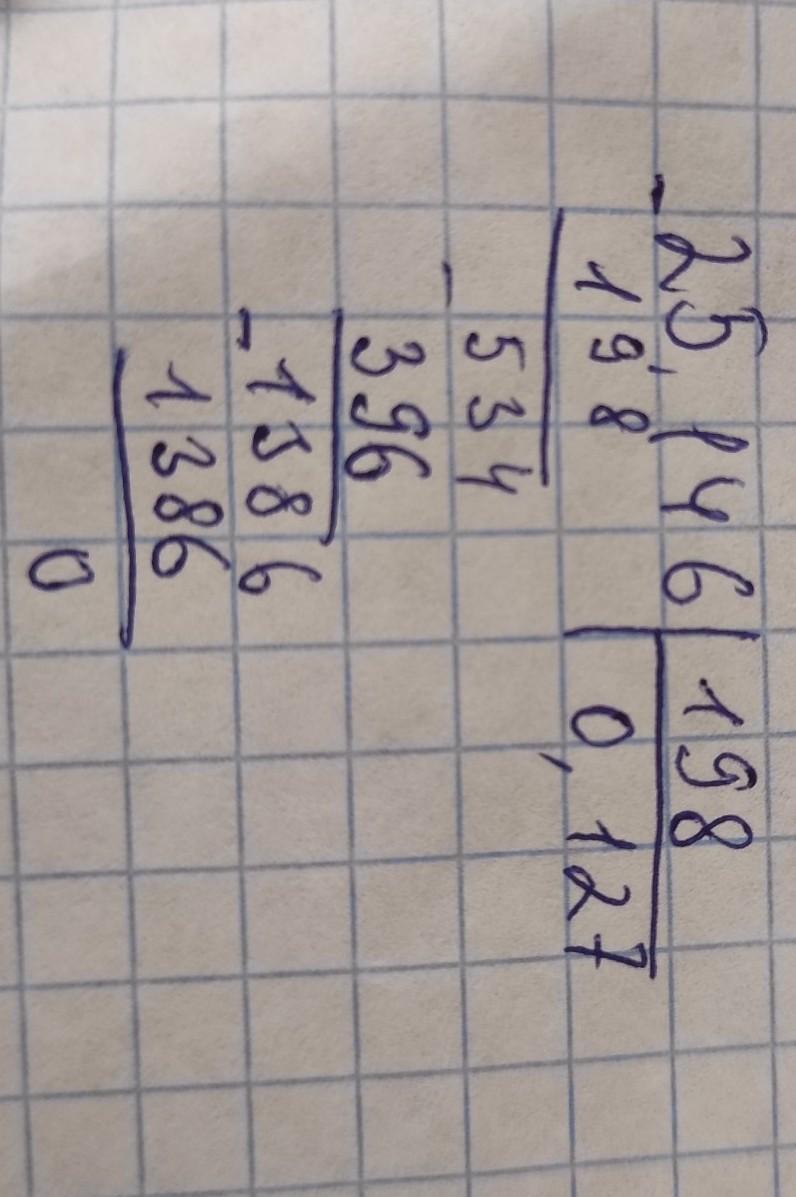 - 25,146 | 198
19,8 | 0,127
- 534
396
- 1386
1386
0